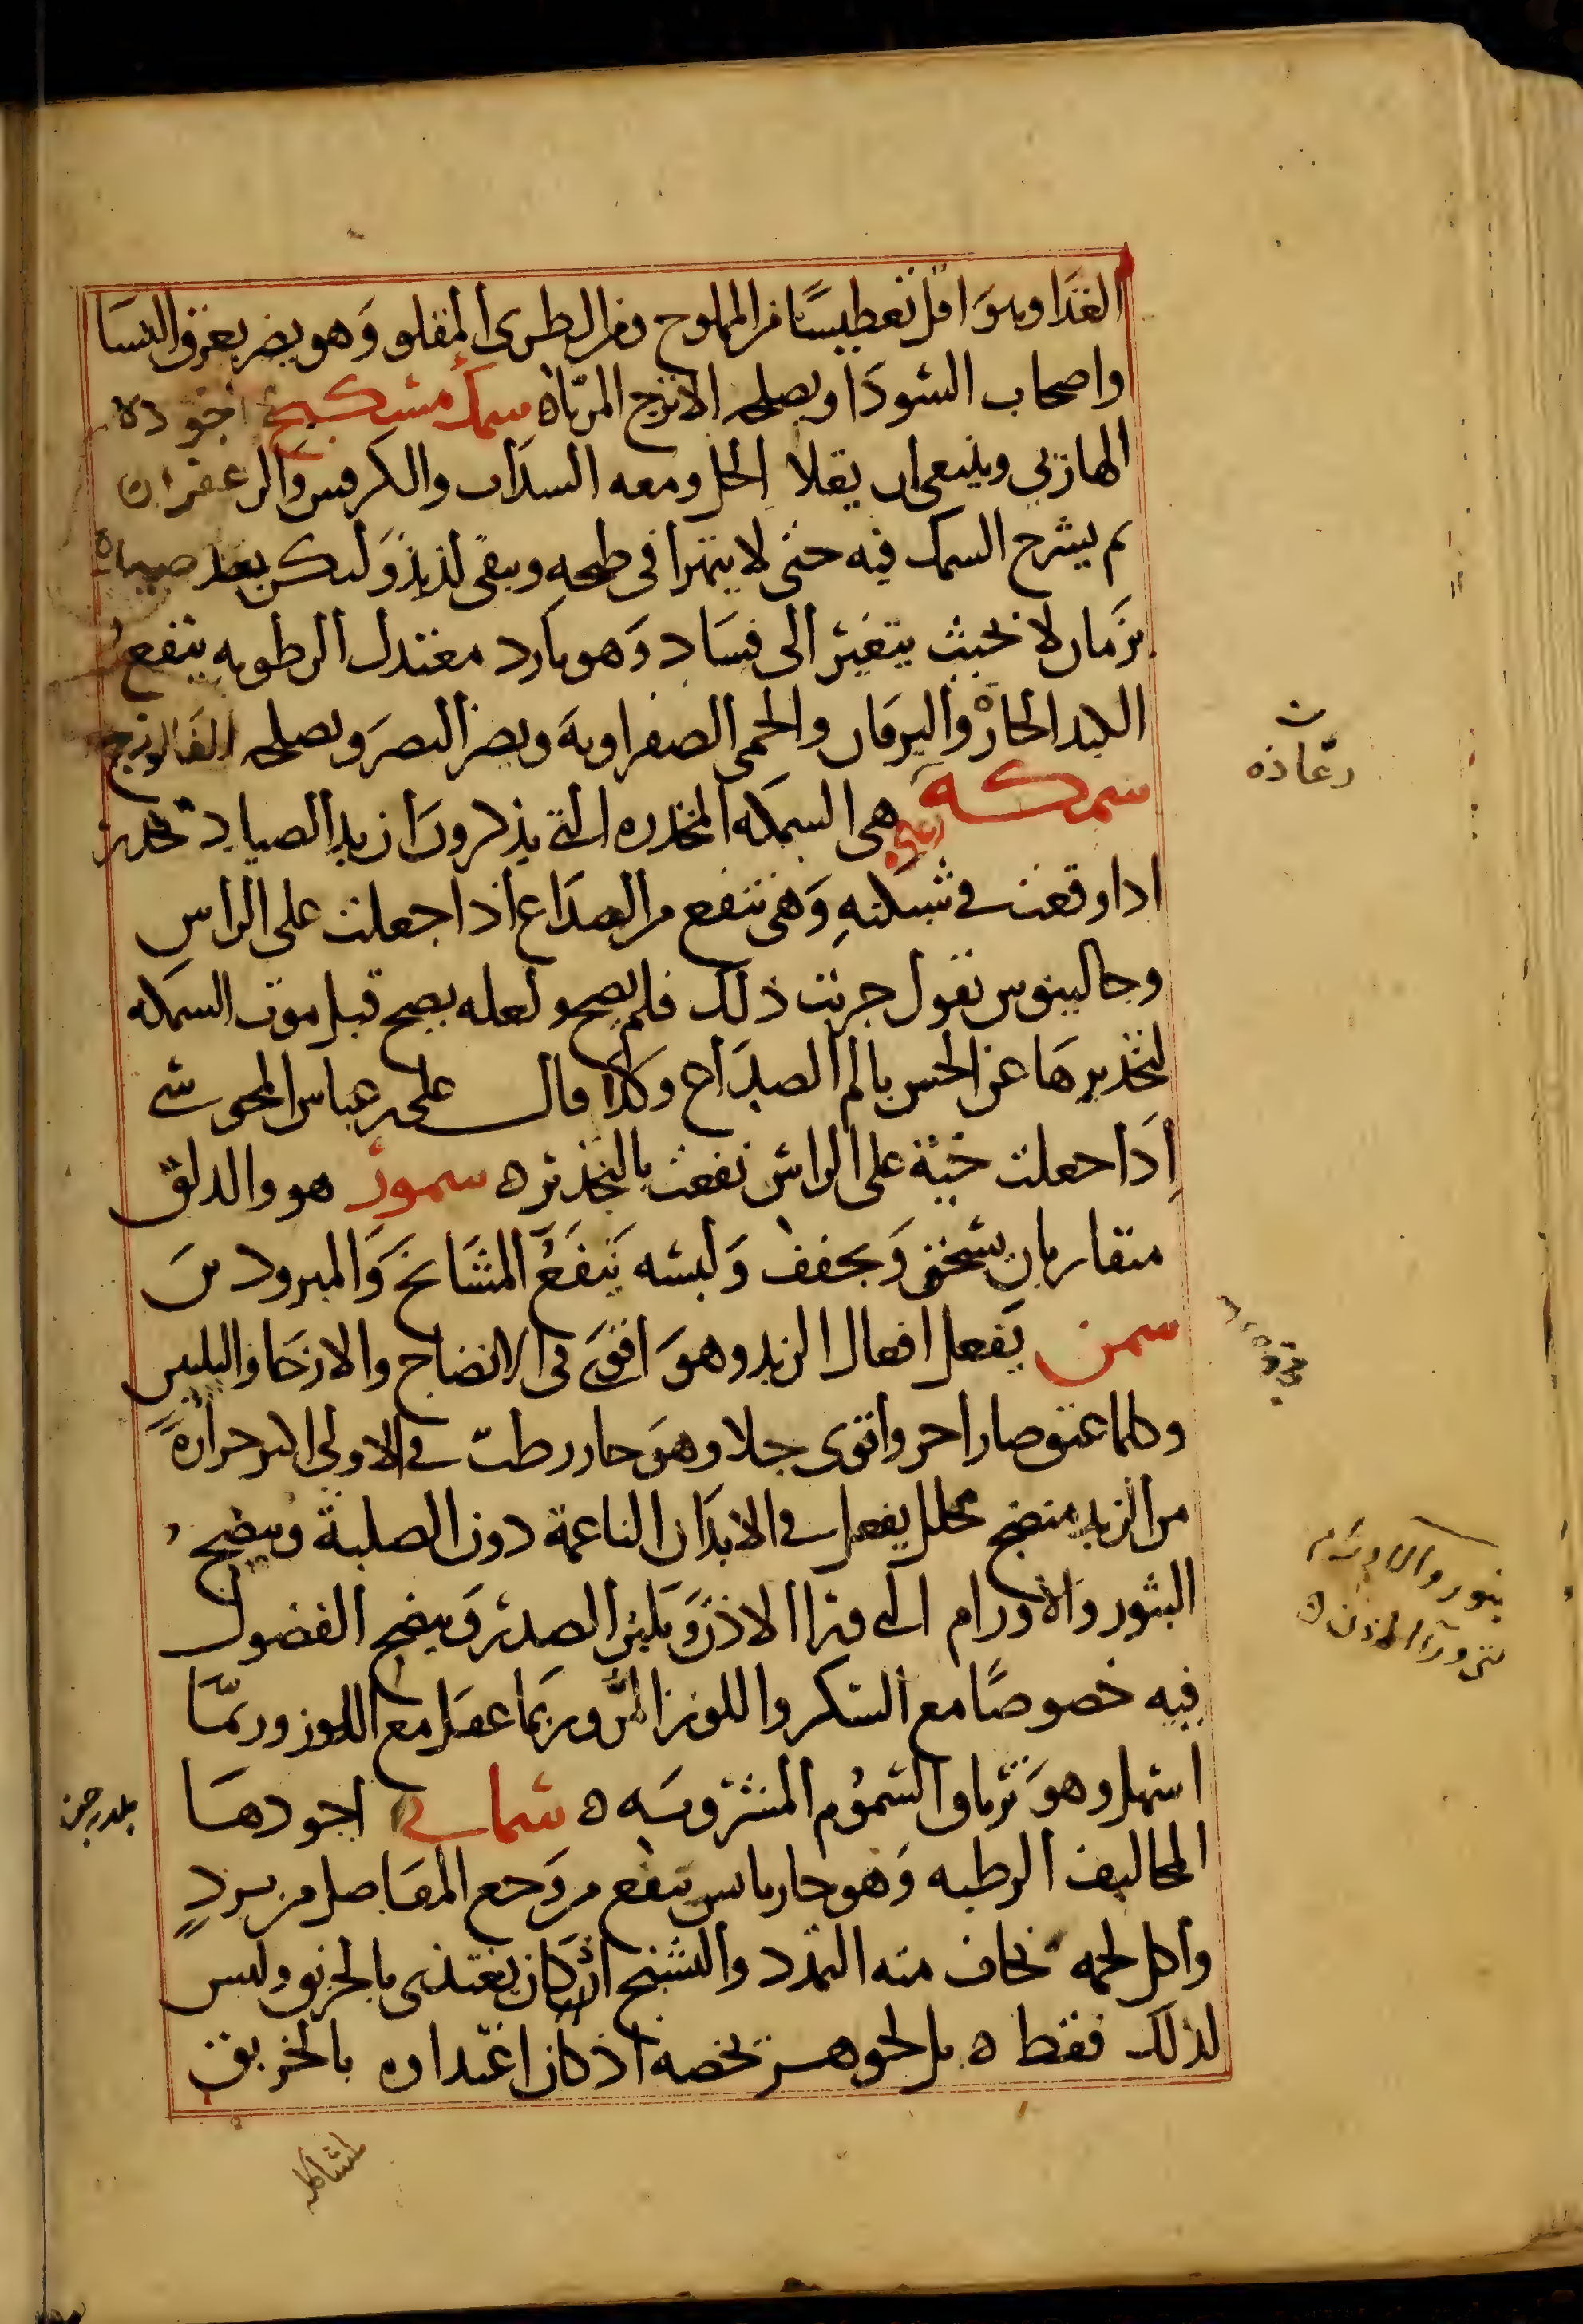 الغذا وهو اقل تعطيسًا من المملوح ومن الطرى المقلو وهو يضر بعرق النسا
واصحاب السودا ويصلحه الاترج المربّاه سمك مسكبج اجوده
الهازبي وينبغى ان يقلا الخل ومعه السداب والكرفس والزعفران
ثم يشرح السمك فيه حتى لا يتهرا فى طبخه ويبقى لذيذ وليكن بعد صيده
بزمان لا بحيث يتغير الى فساد وهو بارد معتدل الرطوبه ينفع
الكبد الحارّ واليرقان والحمى الصفراويه ويضر البصر ويصلحه الفالوذج
سمكه هى السمكه المخدره التى يذكرون ان يد الصياد تخدر
اذا وقعت فى شبكته وهى تنفع من الصداع اذا جعلت على الراس
وجالينوس يقول جربت ذلك فلم يصح ولعله يصح قبل موت السمكه
لتخديرها عن الحس بالم الصداع وكذا قال على بن عباس المجوسى
اذا جعلت حيّة على الراس نفعت بالتخدير ه سمور هو والدلق
متقاربان يسخن ويجفف ولبسه ينفع المشائخ والمبرودين
سمن يفعل افعال الزبد وهو اقوى فى الانضاج والارخا والتليين
وكلما عتق صار احر واقوى جلا وهو حار رطب فى الاولى اكثر حرارة
من الزبد منضج محلل يفعل فى الابدان الناعمة دون الصلبة وينضج
البثور والاورام التى ورا الاذن ويلين الصدر وينضج الفضول
فيه خصوصًا مع السكر واللوز المرّ وربما عقل مع اللوز وربمّا
اسهل وهو ترياق السموم المشروبه ه سمانى اجودها
المخاليف الرطبه وهو حار يابس ينفع من وجع المفاصل من برد
واكل لحمه يخاف منه التمدد والتشنج اذ كان يغتذى بالخربق وليس
لذلك فقط ه بل لجوهر يخصه اذ كان اغتذاوه بالخربق
رعّاده
بثور والاورام
لمشاكله